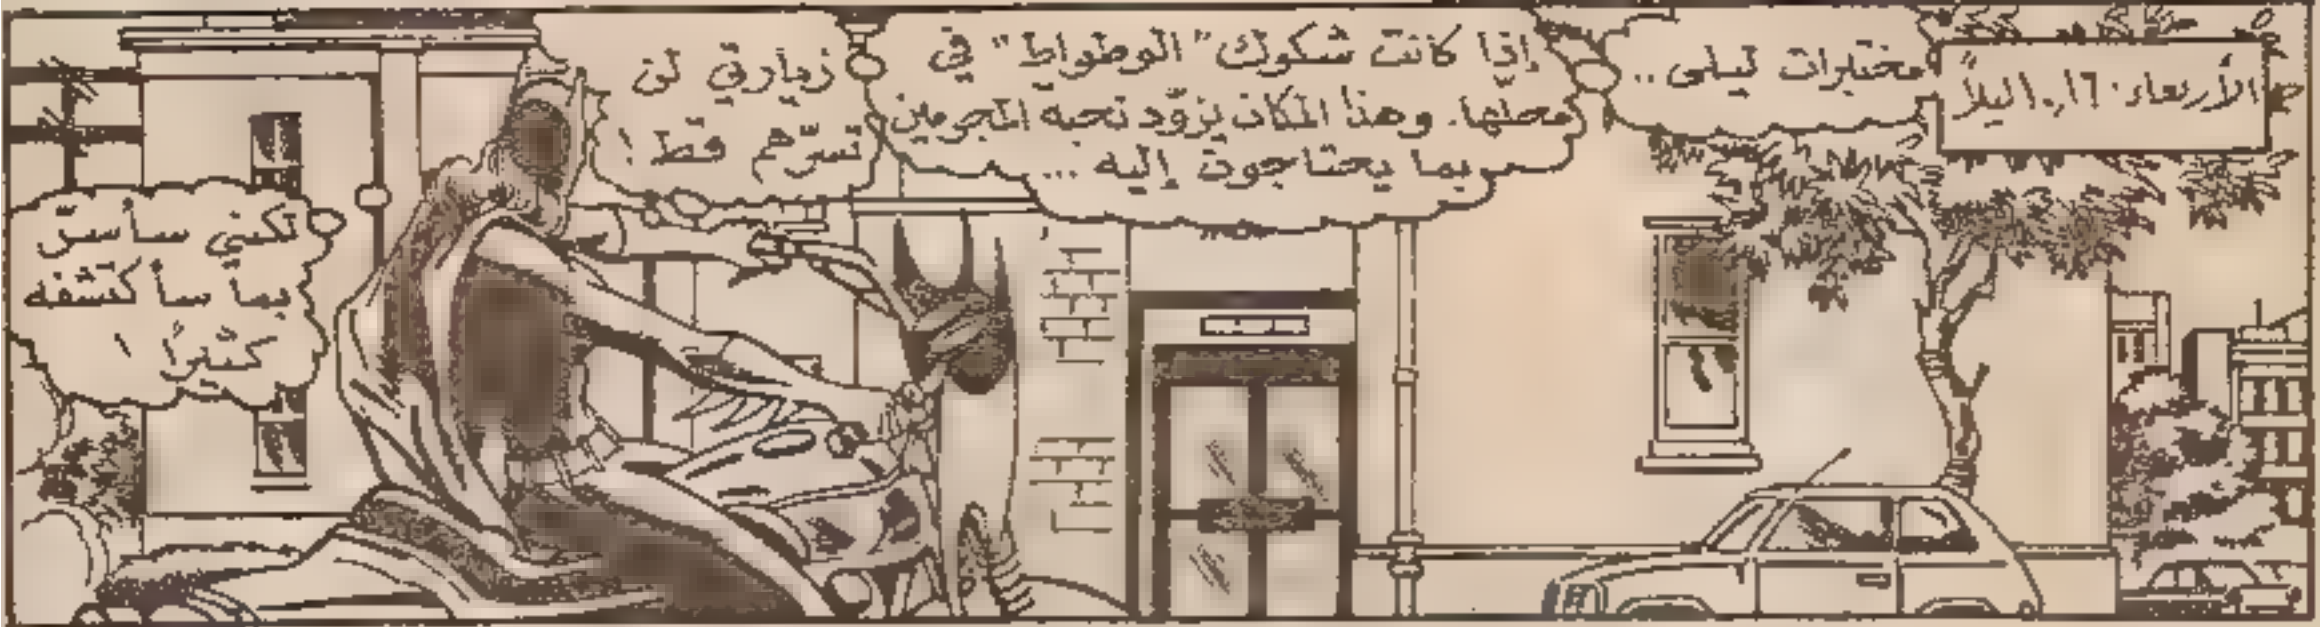 الأربعاء ١٠,١٦ ليلاً
مختبرات ليلى ..
إذا كانت شكوك "الوطواط" في
محلها. وهذا المكان يزوّد تحبه المجرمين
بما يحتاجون إليه ...
زيارتي لن
تسرّهم قط !
لكنني سأسرّ
بما سأكتشفه
كثيراً !